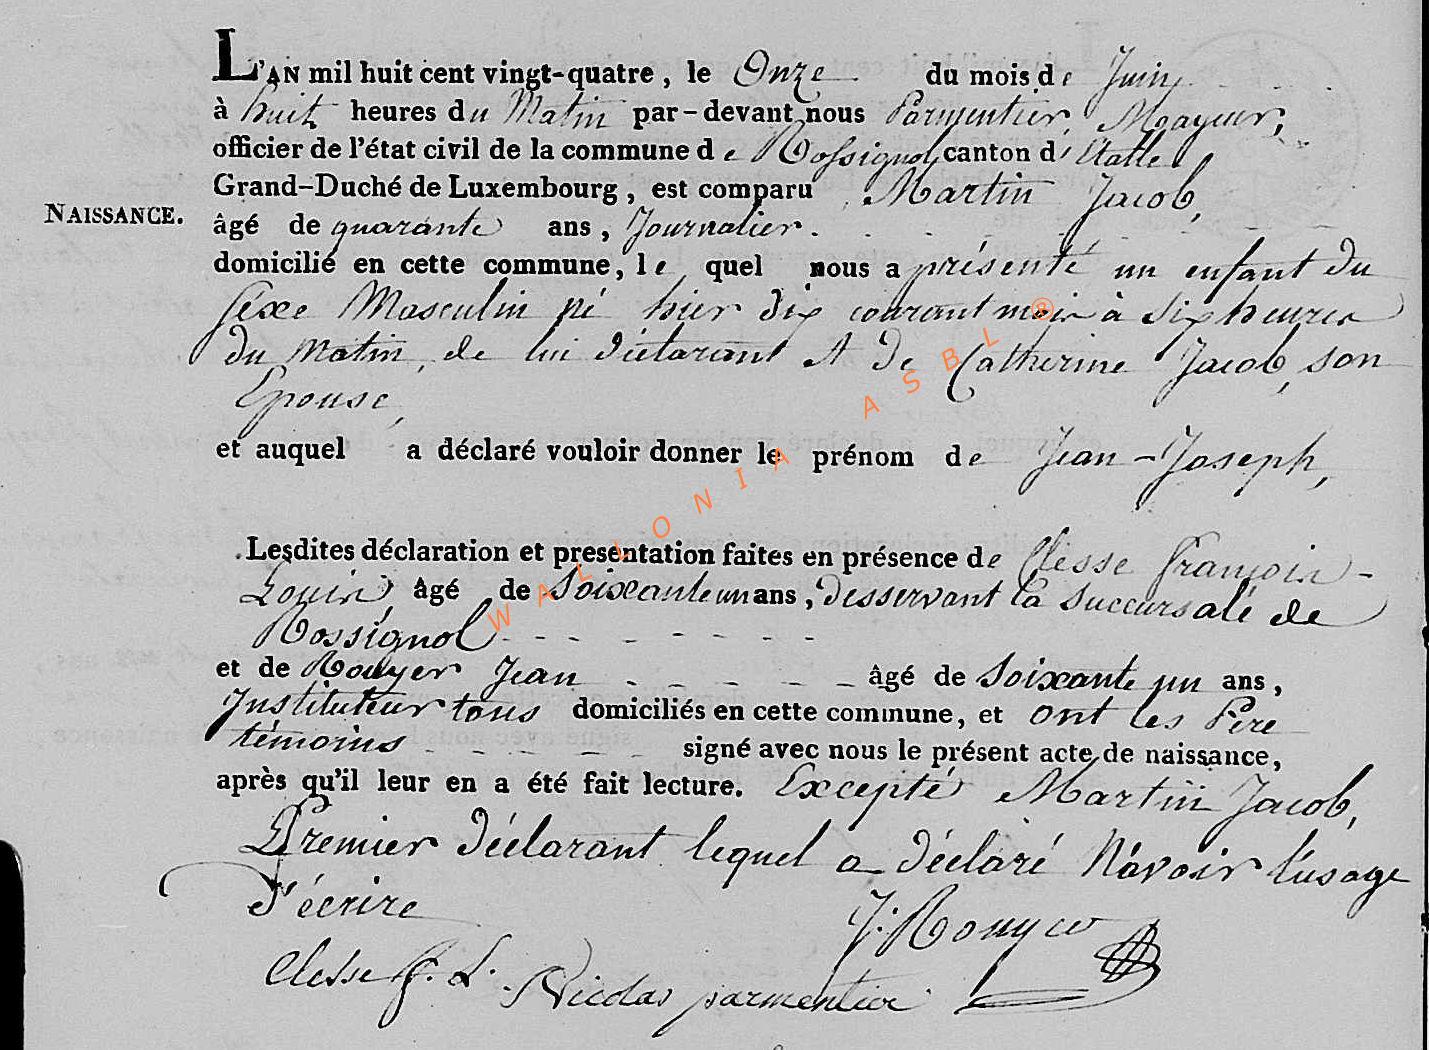 L'AN mil huit cent vingt-quatre, le Onze du mois de Juin
à huit heures du Matin par-devant nous Parmentier, Mayeur,
officier de l'état civil de la commune de Rossignol canton d'Etalle
Grand-Duché de Luxembourg, est comparu Martin Jacob,
NAISSANCE.
âgé de quarante ans, Journalier.
domicilié en cette commune, lequel nous a présenté un enfant du
séxe Masculin né hier dix courant mois à six heures
du matin, de lui déclarant et de Catherine Jacob, son
Epouse,
et auquel a déclaré vouloir donner le prénom de Jean-Joseph,
Lesdites déclaration et presentation faites en présence de Clesse François-
Louis, âgé de Soixante un ans, desservant la succursale de
Rossignol
et de Rouyer Jean âgé de Soixante un ans,
Instituteur tous domiciliés en cette commune, et ont les Pere
témoins signé avec nous le présent acte de naissance,
après qu'il leur en a été fait lecture. Excepté Martin Jacob,
Premier déclarant lequel a déclaré N'avoir l'usage
d'écrire
J: Rouyer
Clesse f. L. Nicolas parmentier
WALLONIA ASBL ®